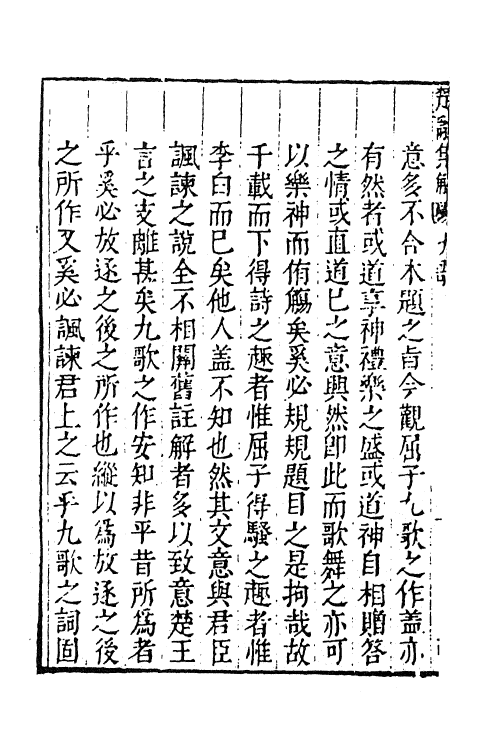 楚辭集解 九歌
意多不合本題之旨今觀屈子九歌之作蓋亦
有然者或道享神禮樂之盛或道神自相贈答
之情或直道已之意興然卽此而歌舞之亦可
以樂神而侑觴矣奚必規規題目之是拘哉故
千載而下得詩之趣者惟屈子得騷之趣者惟
李白而已矣他人盖不知也然其文意與君臣
諷諫之說全不相關舊註解者多以致意楚王
言之支離甚矣九歌之作安知非平昔所爲者
乎奚必放逐之後之所作也縱以爲放逐之後
之所作又奚必諷諫君上之云乎九歌之詞固